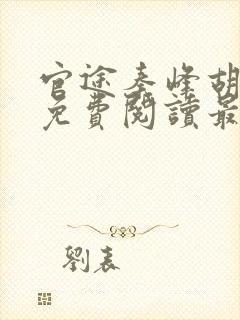 官途秦峰胡
免費閱讀最
劉表